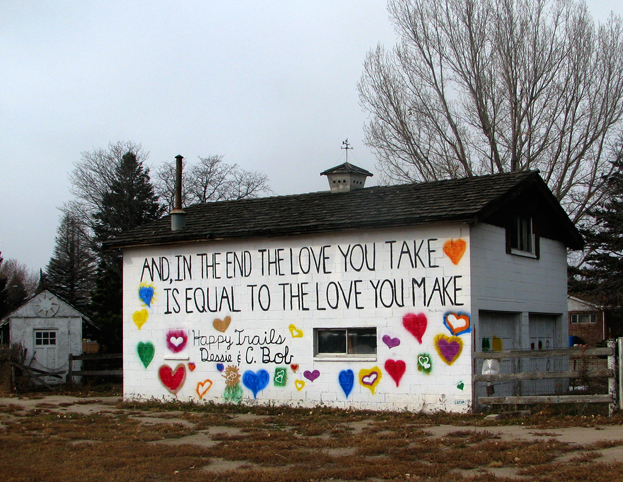 AND, IN THE END THE LOVE YOU TAKE
IS EQUAL TO THE LOVE YOU MAKE
Happy Trails
Dessie & C. Bob